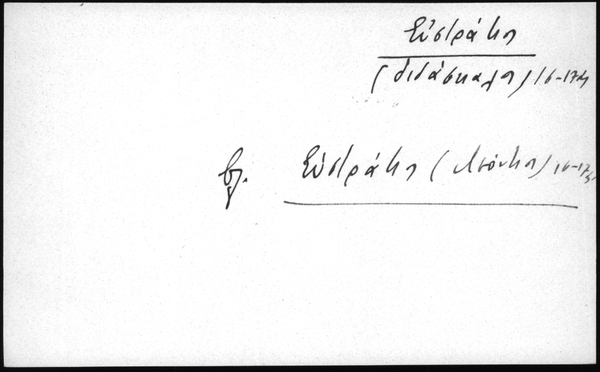 Εὐστράτιος
(διδάσκαλος) 16-17ος
βλ. Εὐστράτιος (Λεόντιος) 16-17ος